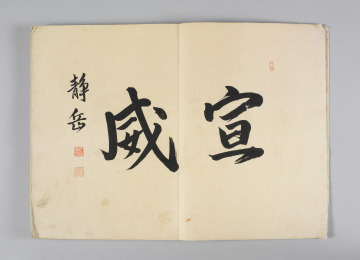 宣威
静岳